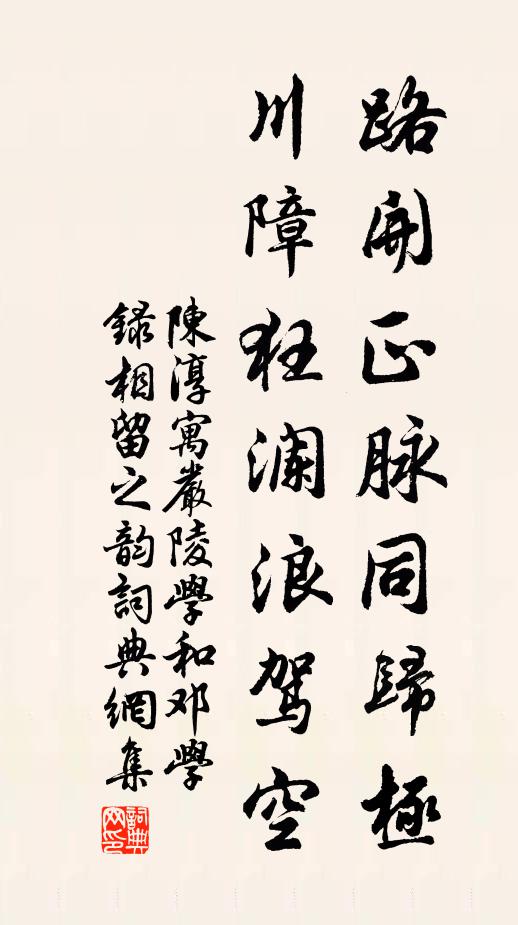 路開正脉同歸極
川障狂瀾浪駕空
陳淳寓嚴陵學和邓學
録相留之韵詞典網集
詞典
网印